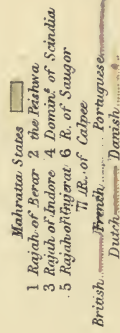 Mahratta States
1 Rajah of Berar 2 the Peishwa
3 Rajah of Indore 4 Domins. of Scindia
5 Rajah of Gujerat 6 R. of Saugor
7 R. of Calpee
British French Portuguese
Dutch Danish